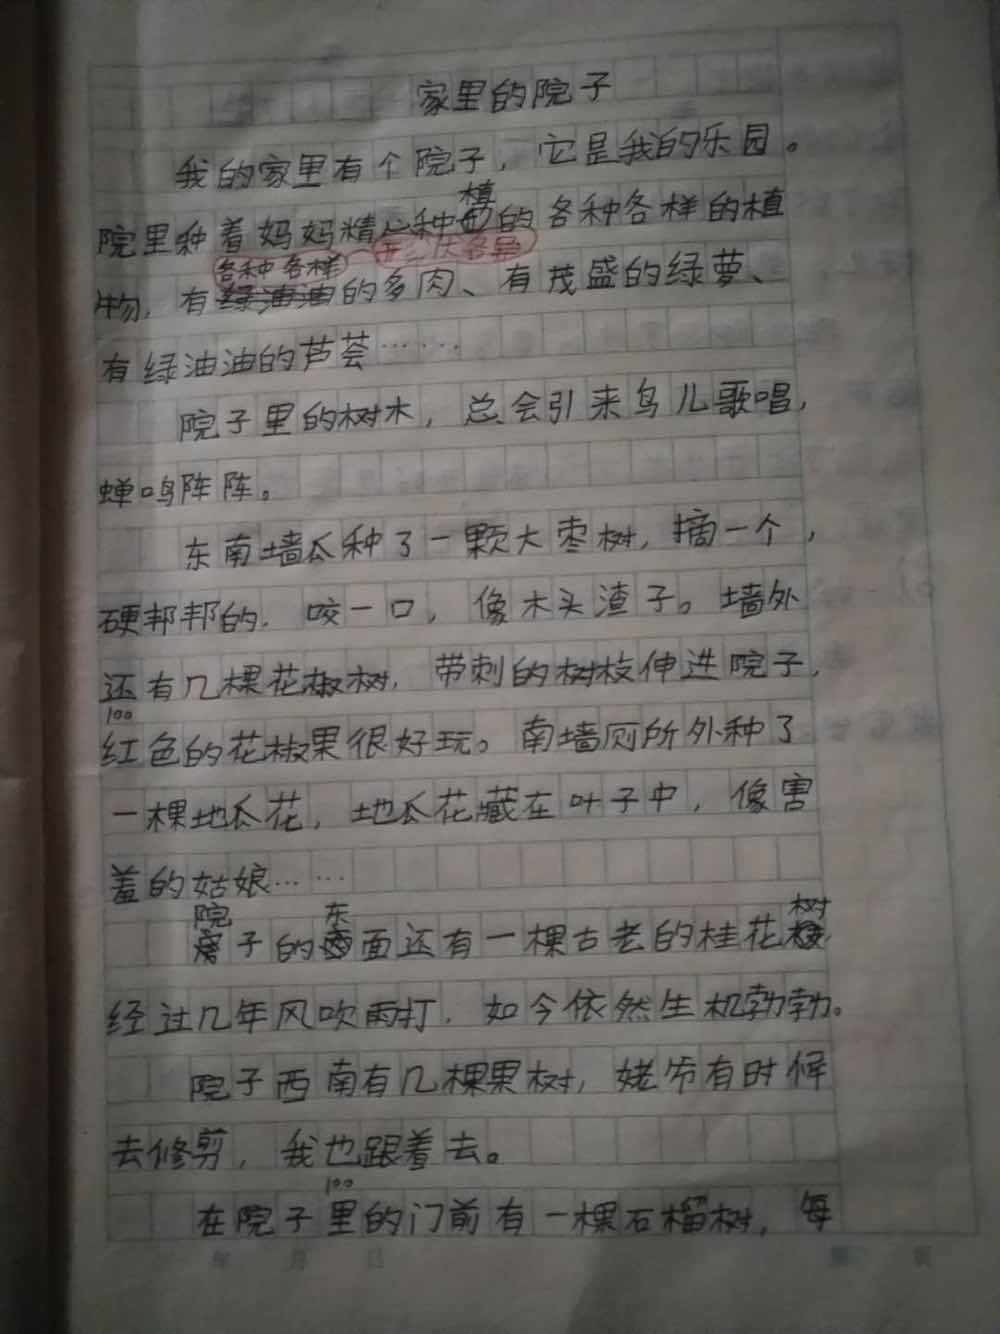 家里的院子
我的家里有个院子，它是我的乐园。
植
院里种着妈妈精心种的各种各样的植
各种各样 形态各异
物，有绿油油的多肉、有茂盛的绿萝、
有绿油油的芦荟……
院子里的树木，总会引来鸟儿歌唱，
蝉鸣阵阵。
东南墙瓜种了一颗大枣树，摘一个，
硬邦邦的，咬一口，像木头渣子。墙外
还有几棵花椒树，带刺的树枝伸进院子，
100
红色的花椒果很好玩。南墙厕所外种了
一棵地瓜花，地瓜花藏在叶子中，像害
羞的姑娘……
院 东 树
子的面还有一棵古老的桂花，
经过几年风吹雨打，如今依然生机勃勃。
院子西南有几棵果树，姥爷有时候
去修剪，我也跟着去。
100
在院子里的门前有一棵石榴树，每
年 月 日 第 页